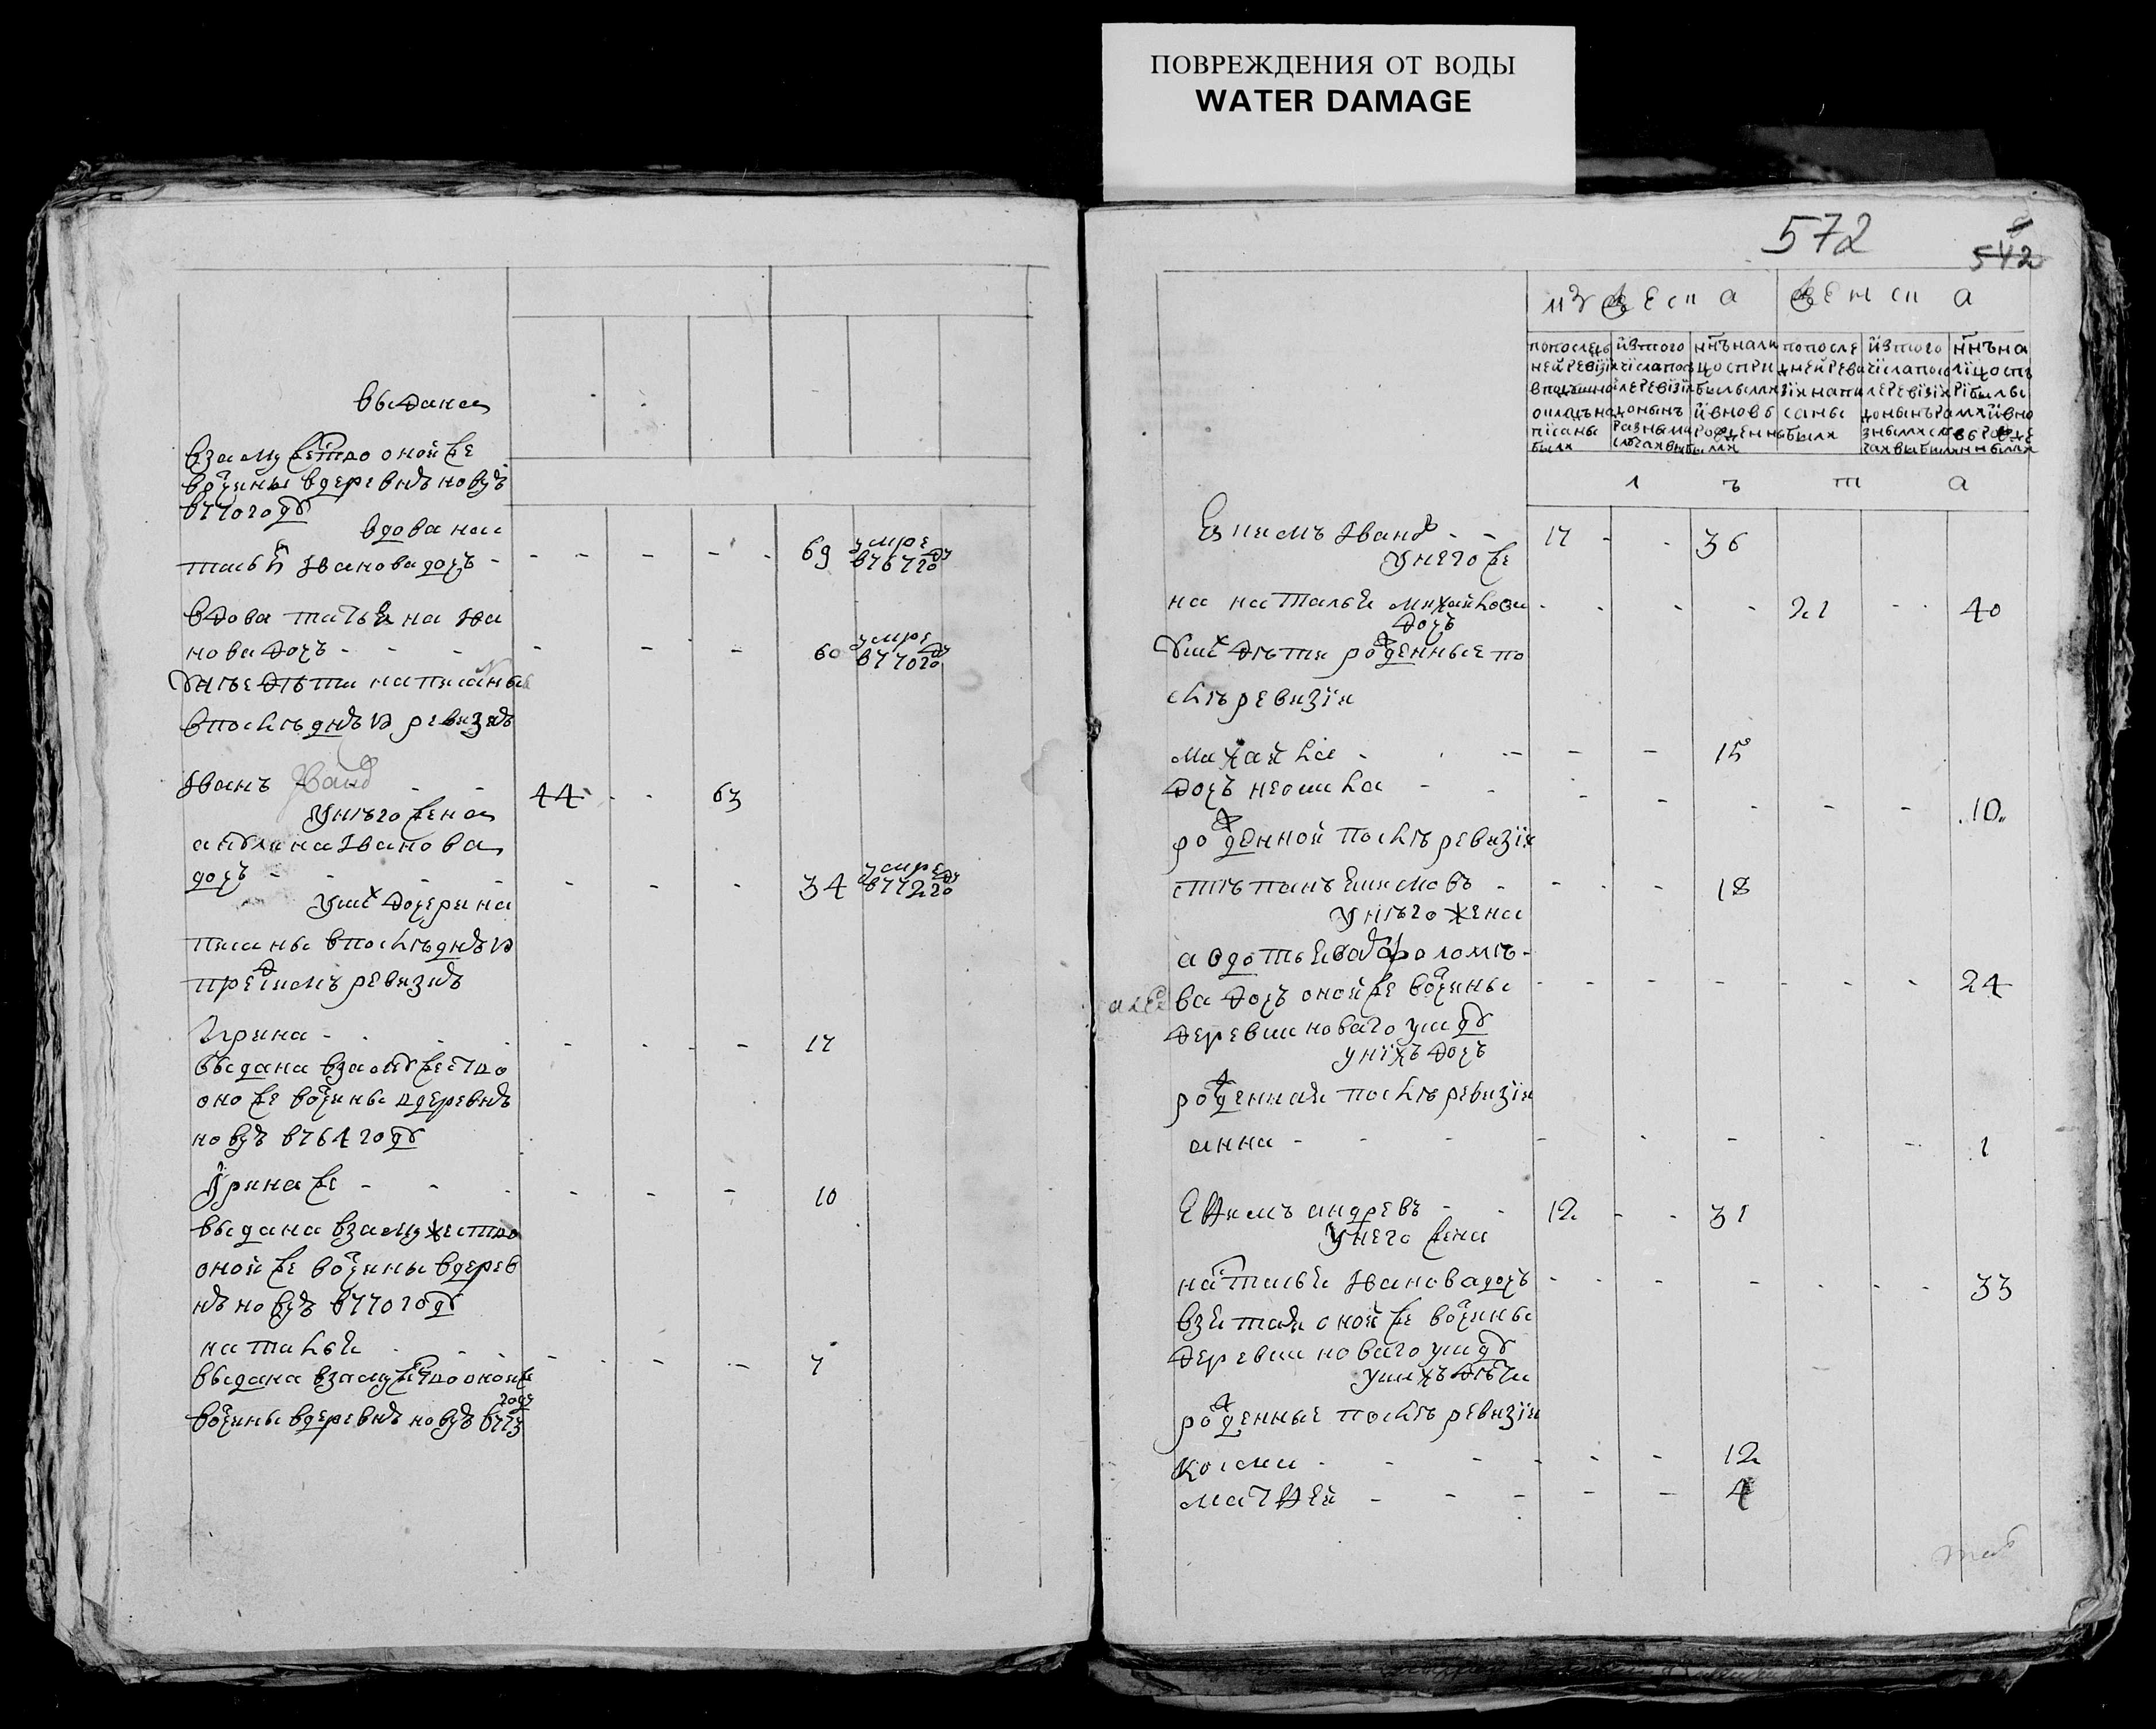 ПОВРЕЖДЕНИЯ ОТ ВОДЫ
WATER DAMAGE
выдана
взамужетво оной же
вотчины вдеревнѣ новѹѣ
в770годꙋ
вдова на
талья Иванова дочь - - - - - 69 умре в767году
вдова татьяна Ива
нова дочь - - - - - - 60 умре в770году
Унѣе дѣти написаны
впослѣднѣю ревизиѣ
Иванъ Иванов - - 44 - - 63
Унѣго жена
Иванова
дочь - - - - - - 34 умре в772году
Унихъ дочери на
писаны впослѣднѣю
ревизиѣ
Ирина - - - - - - 17
выдана взамꙋжество
оно же вотчины вдеревнѣ
в764годꙋ
Ирина же - - - - - - 10
выдана взамужество
оной же вотчины вдерев
нѣ в770годꙋ
наталья - - - - - - 7
выдана взамужетво оной же
вотчины вдеревнѣ в773 году
572
542
мꙋжеска женска
попослед
ней ревизи
вподушно
окладъ на
писаны
были
изтого
числа посл
ле ревизии
донынѣ
разными
случах выбыли
ннѣ нали
цо спри
былыми
ивновь
рожденны
были
попосле
дней реви
зии напи
саны
были
изтого
числа посл
ле ревизии
донынѣ ра
зными слу
чах выбыли
ннѣ на
лицо спъ
рибылы
ми ивно
вь рожде
ными
л ѣ т а
Екимъ Иванов - - 17 - - 36
Унего же
на наталья михайлова - - - - 21 - - 40
дочь
Уних дѣти рожденные по
слѣ ревизии
михайла - - - - - 15
дочь неонила - - - - - - - 10
рожденной послѣ ревизии
степанъ Екимовъ - - - - 18
Унѣго жена
авдотья варфоломѣ-
ва дочь оной же вотчины - - - - - - - 24
деревни новаго
унихъ дочь
рожденная послѣ ревизии
анна - - - - - - - - 1
Ефимъ андревъ - - 12 - - 31
Унего жена
наталья Иванова дочь - - - - - - - 33
взятая оной же вотчины
деревни новаго
унихъ дѣти
рожденные послѣ ревизии
козма - - - - - - 12
матфей - - - - - 4